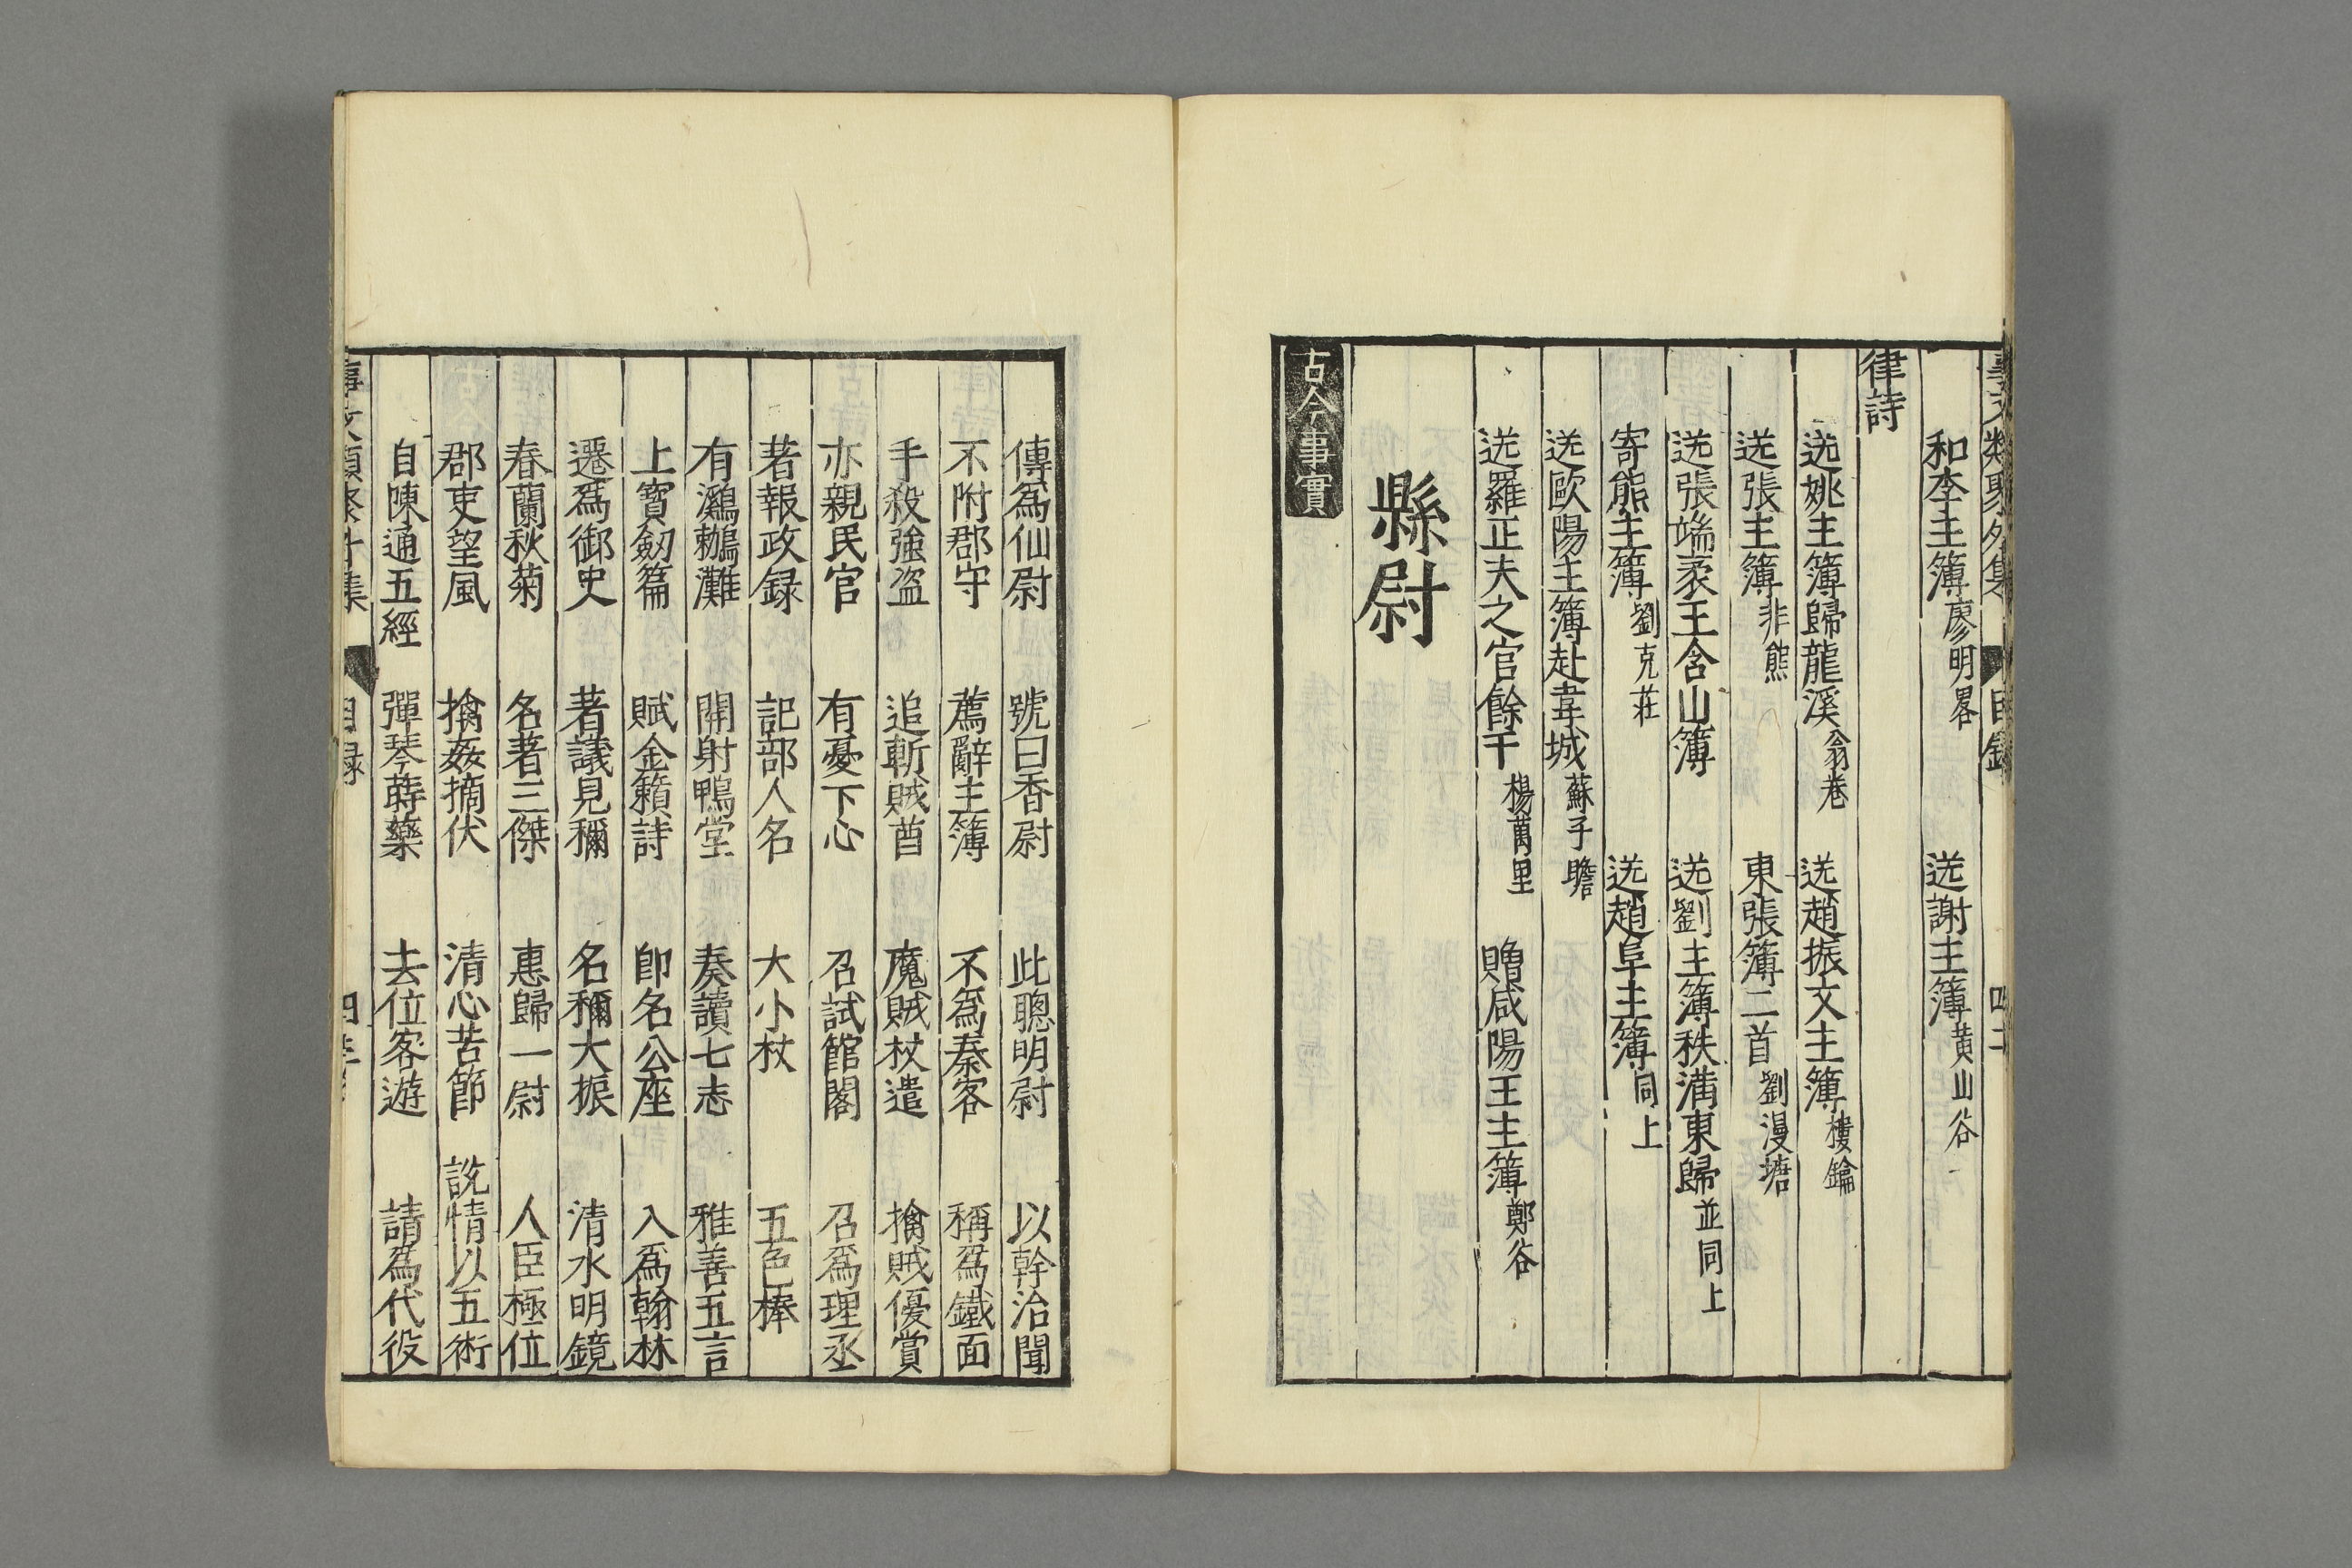 事文類聚外集 目録
和李主簿 廖明畧 送謝主簿 黄山谷
律詩
送姚主簿歸龍溪 翁卷 送趙振文主簿 樓鑰
送張主簿 非熊 東張簿二首 劉漫塘
送張端柔王含山簿 送劉主簿秩滿東歸 並同上
寄熊主簿 劉克莊 送趙阜主簿 同上
送歐陽主簿赴韋城 蘇子瞻
送羅正夫之官餘干 楊萬里 贈咸陽王主簿 鄭谷
縣尉
古今事實
傳為仙尉 號曰香尉 此聰明尉 以幹治聞
不附郡守 薦辭主簿 不為秦客 稱為鐵面
手殺強盜 追斬賊酋 魔賊杖遣 擒賊優賞
亦親民官 有憂下心 召試館閣 召為理丞
著報政録 記部人名 大小杖 五色棒
有鸂鶒灘 開射鴨堂 奏讀七志 雅善五言
上寳劒篇 賦金籟詩 即名公座 入為翰林
遷為御史 著議見稱 名稱大振 清水明鏡
春蘭秋菊 名著三傑 惠歸一尉 人臣極位
郡吏望風 擒姦摘伏 清心苦節 説情以五術
自陳通五經 彈琴蒔藥 去位客遊 請為代役
事文類聚外集 目録